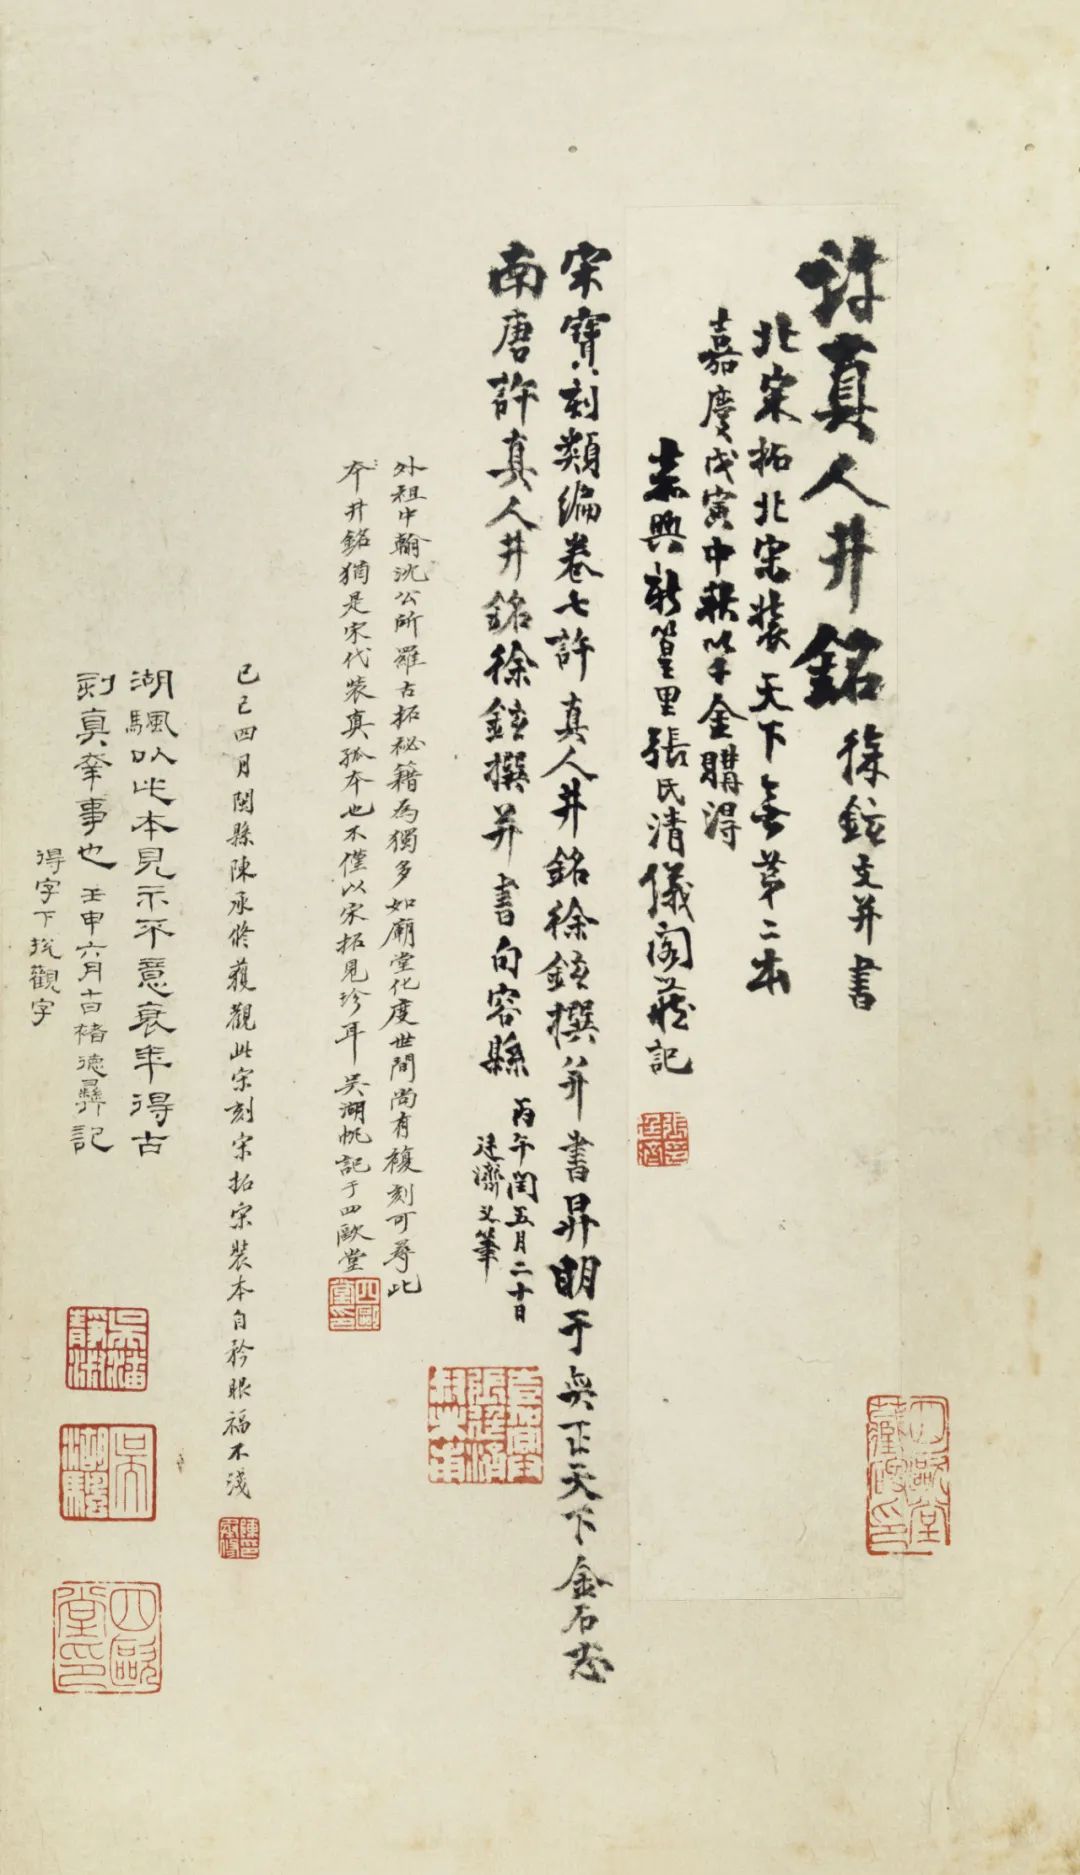 許真人井銘
徐鉉文并書
北宋拓北宋裝天下無第二本
嘉慶戊寅中秋以金購得
嘉興新篁里張氏清儀閣藏記
宋寶刻類編卷七許真人井銘徐鉉撰并書昇明于奕正天下金石志
南唐許真人井銘徐鉉撰并書句容縣
丙午閏五月二十日
廷濟又筆
外祖中翰沈公所羅古拓秘籍為獨多如廟堂化度世間尚有複刻可尋此
本井銘猶是宋代裝真孤本也不僅以宋拓見珍耳 吳湖帆記于四歐堂
四歐堂印
己巳四月閩縣陳承修獲觀此宋刻宋拓宋裝本自矜眼福不淺
湖颿以此本見示不意衰年得古
刻真幸事也 壬申六月十日褚德彝記
得字下挩觀字
四歐堂印